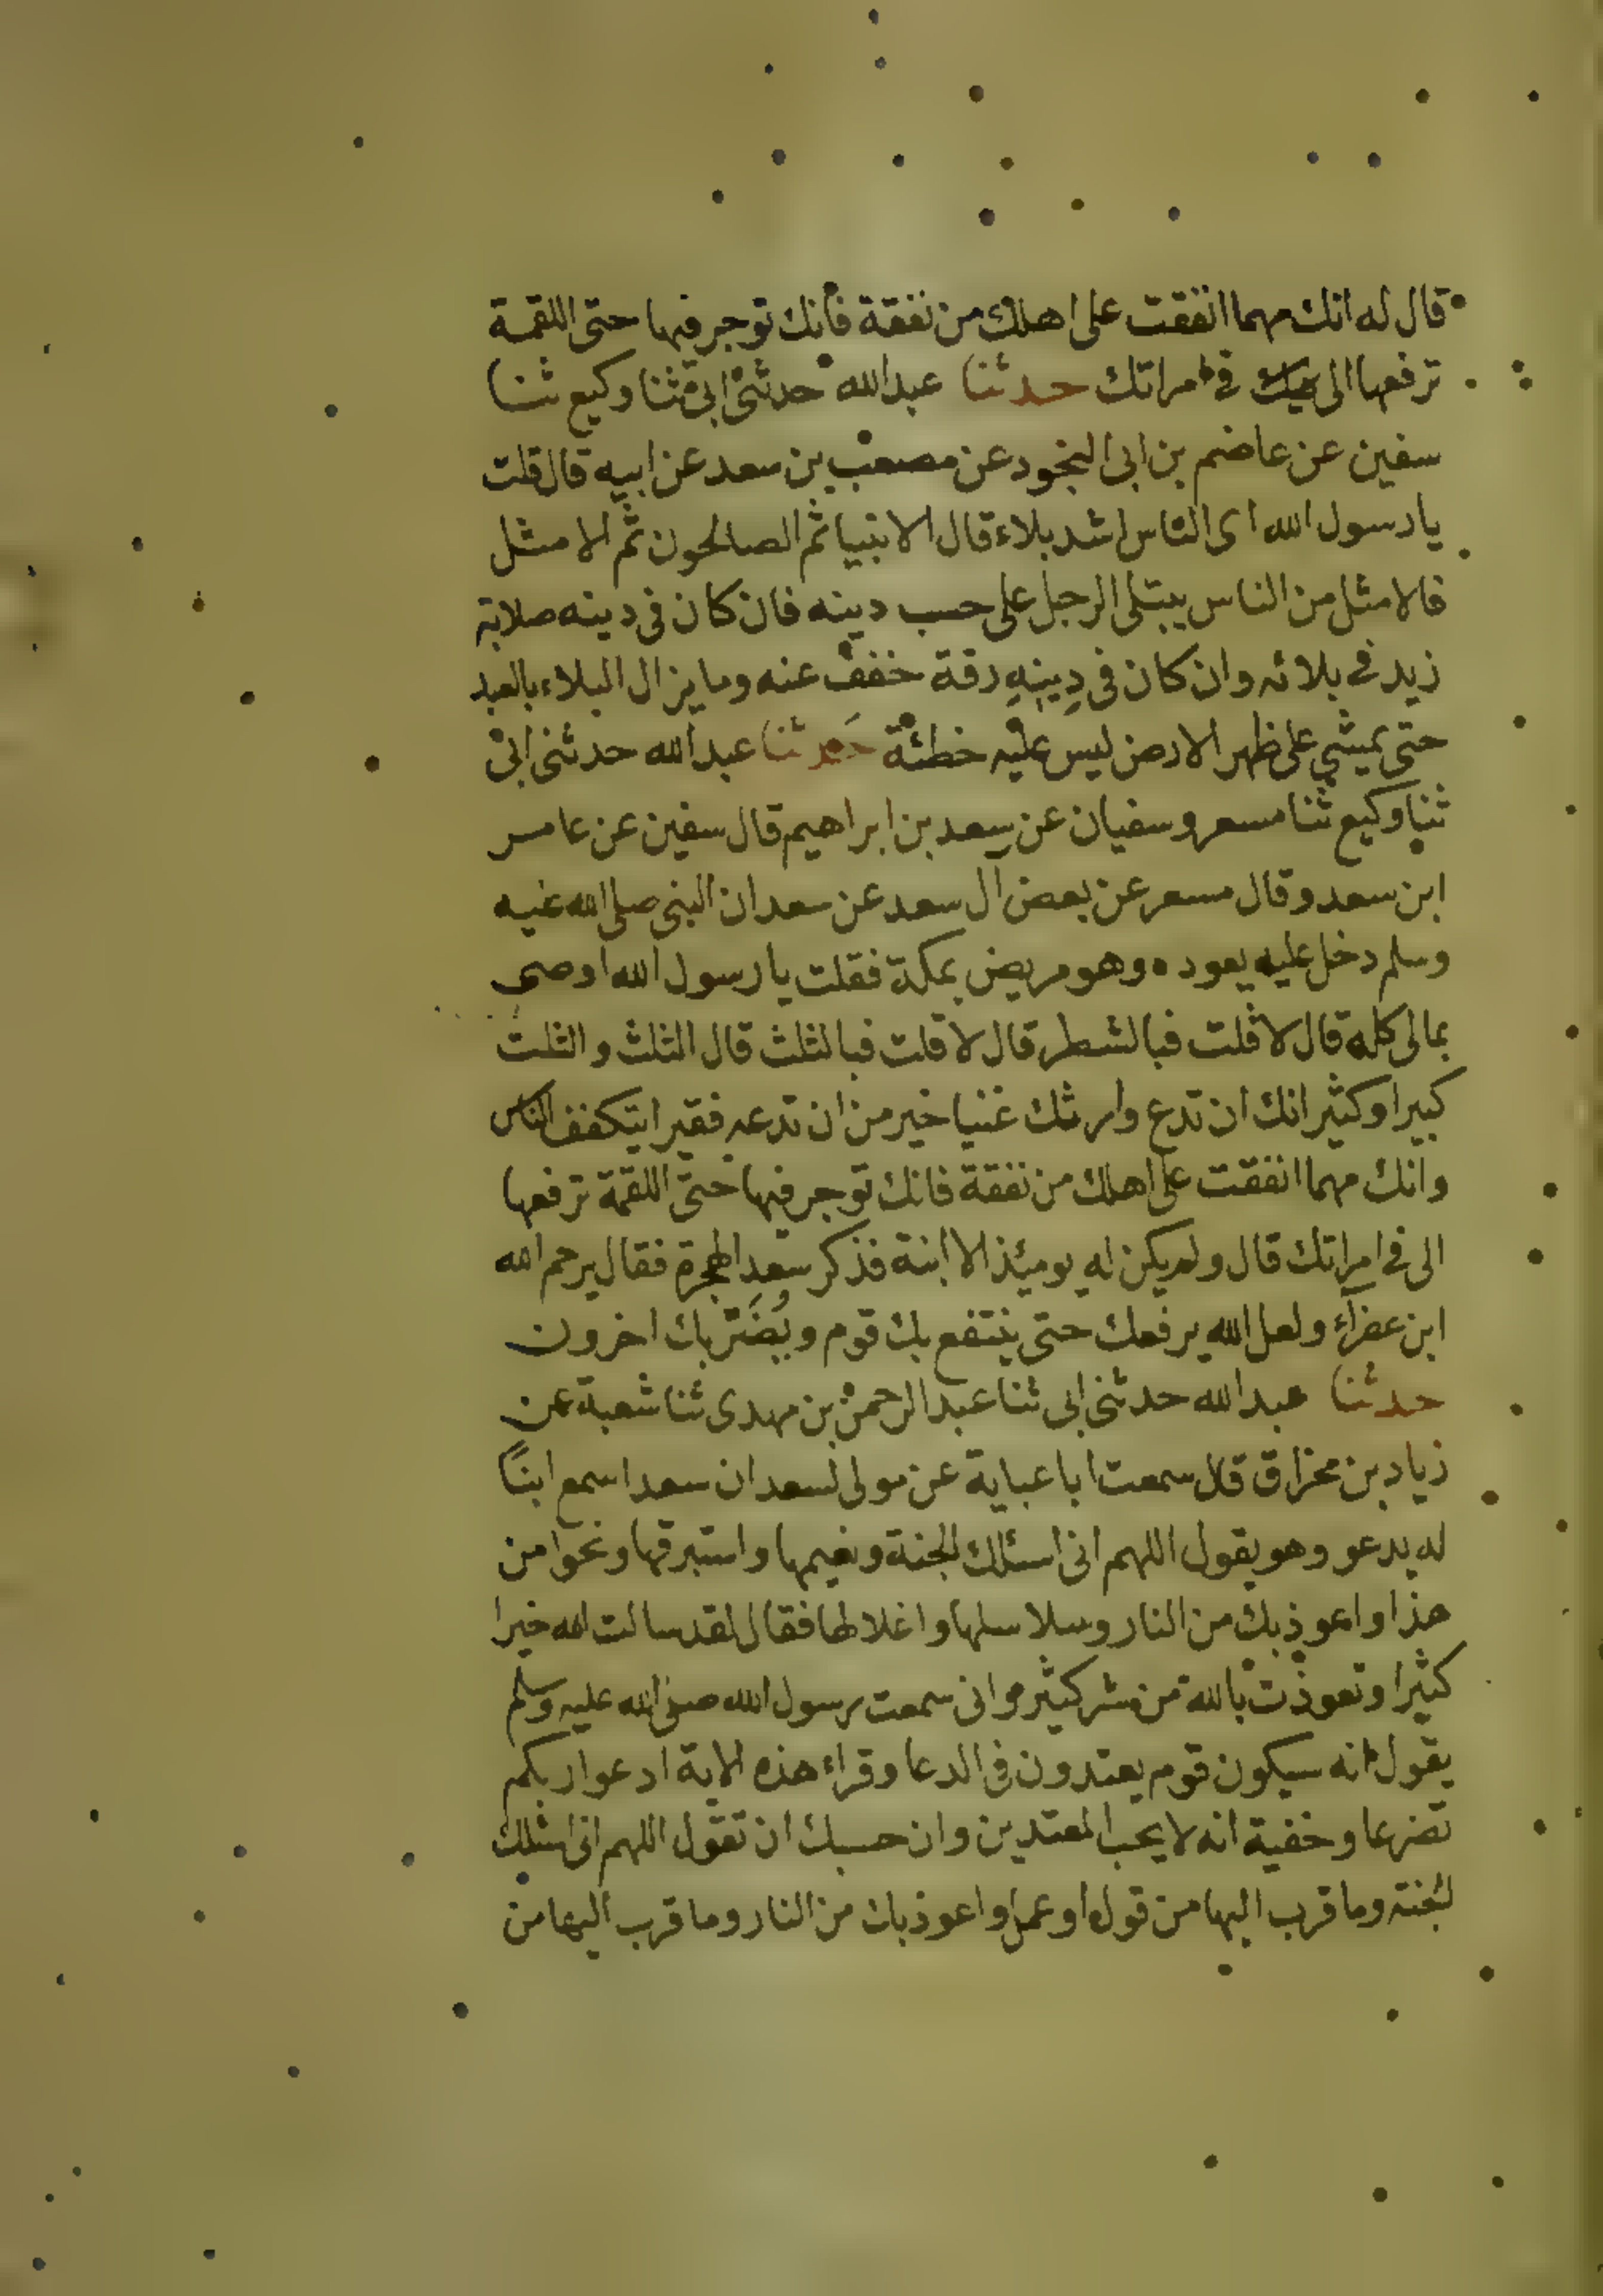 قال له انك مهما انفقت على اهلك من نفقة فانك توجر فيها حتى اللقمة
ترفعها الى في امراتك حدثنا عبدالله حدثنى ابى ثنا وكيع ثنا
سفين عن عاصم بن ابى النجود عن مصعب بن سعد عن ابيه قال قلت
يا رسول الله اى الناس اشد بلاء قال الانبيا ثم الصالحون ثم الامثل
فالامثل من الناس يبتلى الرجل على حسب دينه فان كان فى دينه صلابة
زيد في بلائه وان كان فى دِينِهِ رقة خفف عنه وما يزال البلاء بالعبد
حتى يمشي على ظهر الارض ليس عليه خطئة حدثنا عبدالله حدثنى ابى
ثنا وكيع ثنا مسعر وسفيان عن سعد بن ابراهيم قال سفين عن عامر
ابن سعد وقال مسعر عن بعض آل سعد عن سعد ان النبى صلى الله عليه
وسلم دخل عليه يعوده وهو مريض بمكة فقلت يا رسول الله اوصى
بمالى كله قال لا قلت فبالشطر قال لا قلت فبالثلث قال الثلث والثلث
كبير او كثير انك ان تدع وارثك غنيا خير من ان تدعه فقيرا يتكفف الناس
وانك مهما انفقت على اهلك من نفقة فانك توجر فيها حتى اللقمة ترفعها
الى في امراتك قال ولم يكن له يومئذ الا ابنة فذكر سعد الهجرة فقال يرحم الله
ابن عفرآء ولعل الله يرفعك حتى ينتفع بك قوم ويُضَرّ بك اخرون
حدثنا عبدالله حدثنى ابى ثنا عبد الرحمن بن مهدى ثنا شعبة عن
زياد بن مخراق قال سمعت ابا عباية عن مولى لسعد ان سعدا سمع ابنًا
له يدعو وهو يقول اللهم انى اسئلك الجنة ونعيمها واستبرقها ونحوا من
هذا واعوذ بك من النار وسلاسلها واغلالها فقال لقد سالت الله خيرا
كثيرا وتعوذت بالله من شر كثير وانى سمعت رسول الله صلى الله عليه وسلم
يقول انه سيكون قوم يعتدون فى الدعا وقراء هذه الاية ادعوا ربكم
تضرعا وخفية انه لا يحب المعتدين وان حسبك ان تقول اللهم انى اسئلك
الجنة وما قرب اليها من قول او عمل واعوذ بك من النار وما قرب اليها من